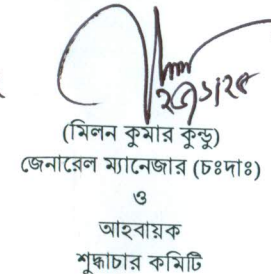 (মিলন কুমার কুন্ডু)
জেনারেল ম্যানেজার (চঃদাঃ)
ও
আহবায়ক
শুদ্ধাচার কমিটি